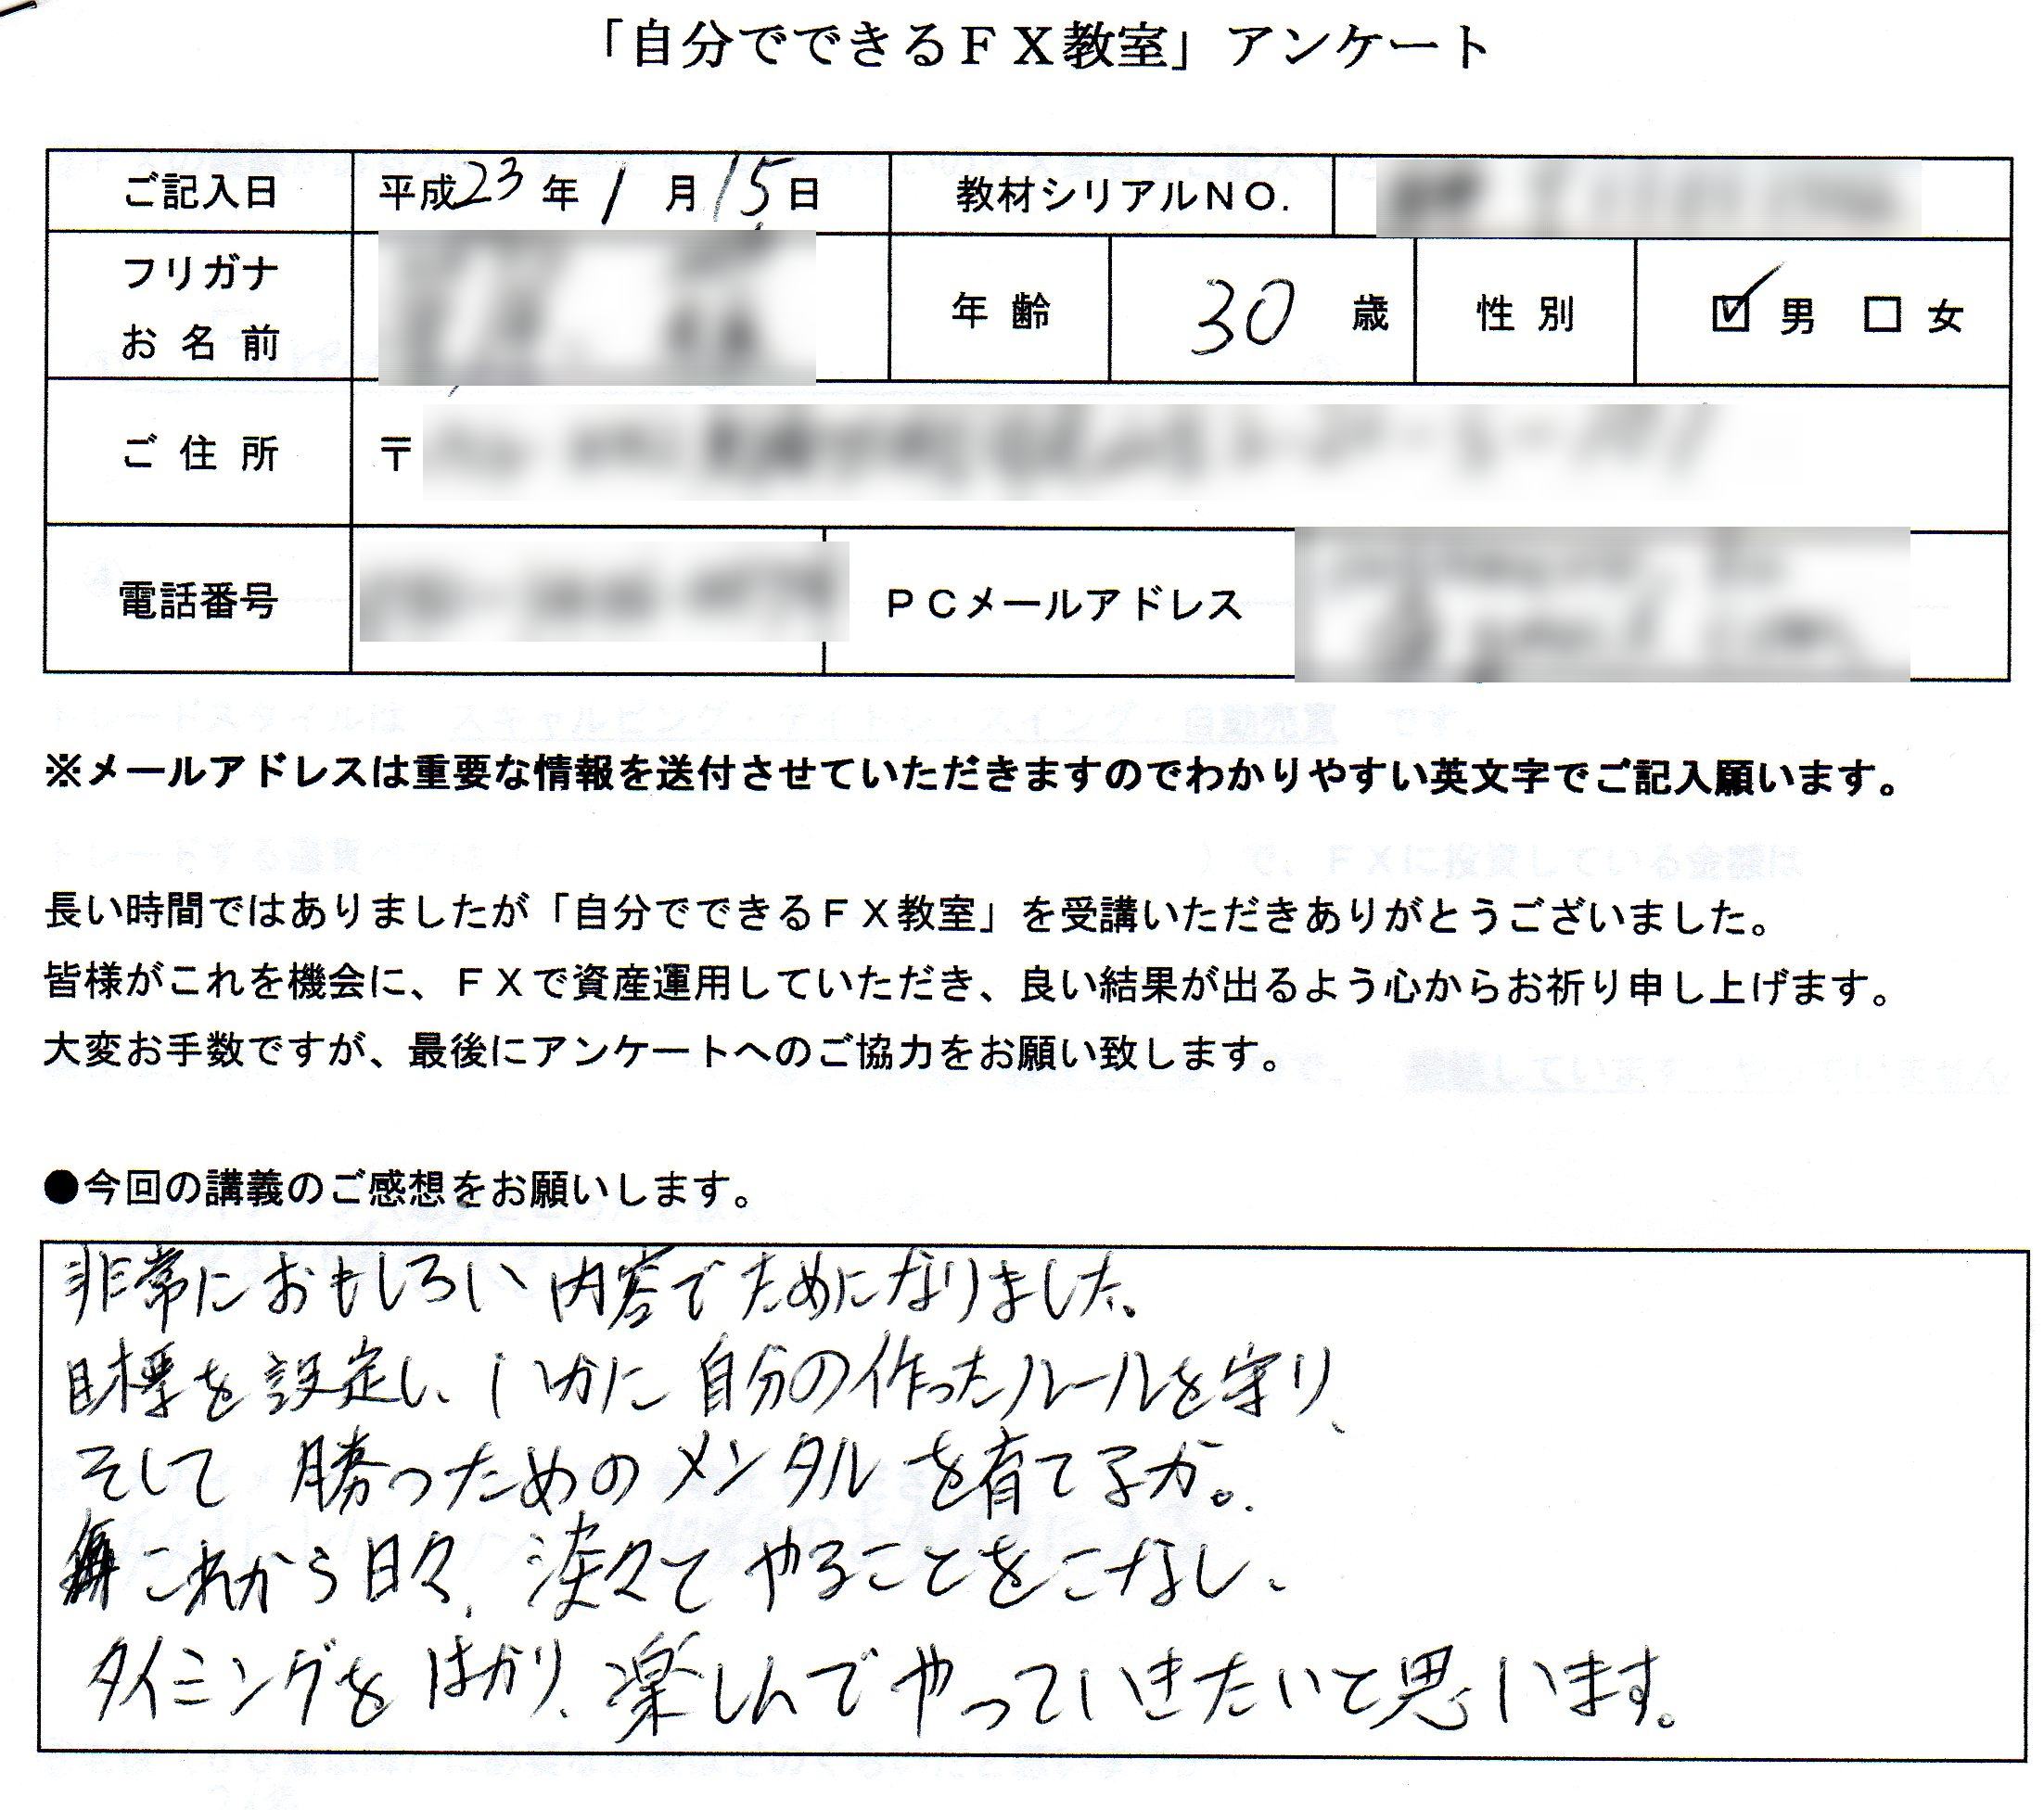 「自分でできるＦＸ教室」アンケート
ご記入日 平成23年1月15日 教材シリアルＮＯ.
フリガナ
お名前 年齢 30歳 性別 ☑男 □女
ご住所 〒
電話番号 ＰＣメールアドレス
※メールアドレスは重要な情報を送付させていただきますのでわかりやすい英文字でご記入願います。
長い時間ではありましたが「自分でできるＦＸ教室」を受講いただきありがとうございました。
皆様がこれを機会に、ＦＸで資産運用していただき、良い結果が出るよう心からお祈り申し上げます。
大変お手数ですが、最後にアンケートへのご協力をお願い致します。
●今回の講義のご感想をお願いします。
非常におもしろい内容でためになりました。
目標を設定し、いかに自分の作ったルールを守り、
そして勝つためのメンタルを育てるか。
これから日々、淡々とやることをこなし、
タイミングをはかり、楽しんでやっていきたいと思います。